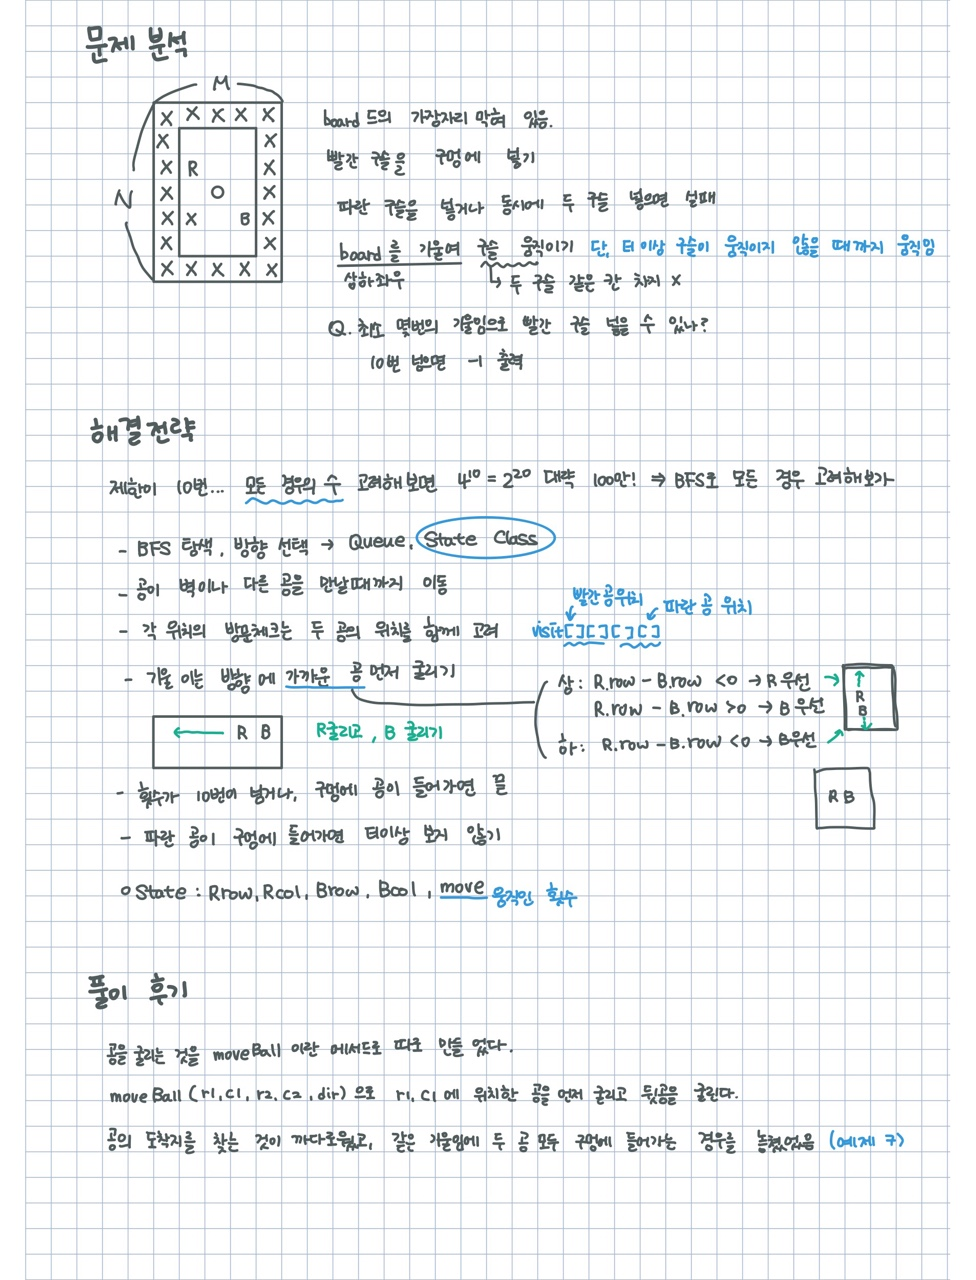 문제 분석
M
X X X X X
X X
X R X
N X O X
X X B X
X X
X X X X X
board 드의 가장자리 막혀 있음.
빨간 구슬을 구멍에 넣기
파란 구슬을 넣거나 동시에 두 구슬 넣으면 실패
board를 기울여 구슬 움직이기 단, 더 이상 구슬이 움직이지 않을 때까지 움직임
상하좌우 ↳ 두 구슬 같은 칸 차지 X
Q. 최소 몇번의 기울임으로 빨간 구슬 넣을 수 있나?
10번 넘으면 -1 출력
해결전략
제한이 10번... 모든 경우의 수 고려해보면 4¹⁰ = 2²⁰ 대략 100만! ⇒ BFS로 모든 경우 고려해보가
- BFS 탐색, 방향 선택 → Queue, State Class
- 공이 벽이나 다른 공을 만날때까지 이동
빨간공위치 파란 공 위치
- 각 위치의 방문체크는 두 공의 위치를 함께 고려 visit[][][][]
- 기울이는 방향에 가까운 공 먼저 굴리기
상: R.row - B.row < 0 → R우선
R.row - B.row > 0 → B우선
하: R.row - B.row < 0 → B우선
↑
R
B
↓
← R B R굴리고, B굴리기
R B
- 횟수가 10번이 넘거나, 구멍에 공이 들어가면 끝
- 파란 공이 구멍에 들어가면 더이상 보지 않기
o State : Rrow, Rcol, Brow, Bcol, move 움직인 횟수
풀이 후기
공을 굴리는 것을 moveBall 이란 메서드로 따로 만들었다.
moveBall (r1, c1, r2, c2, dir) 으로 r1, c1 에 위치한 공을 먼저 굴리고 뒷공을 굴린다.
공의 도착지를 찾는 것이 까다로웠고, 같은 기울임에 두 공 모두 구멍에 들어가는 경우를 놓쳤었음 (예제 7)